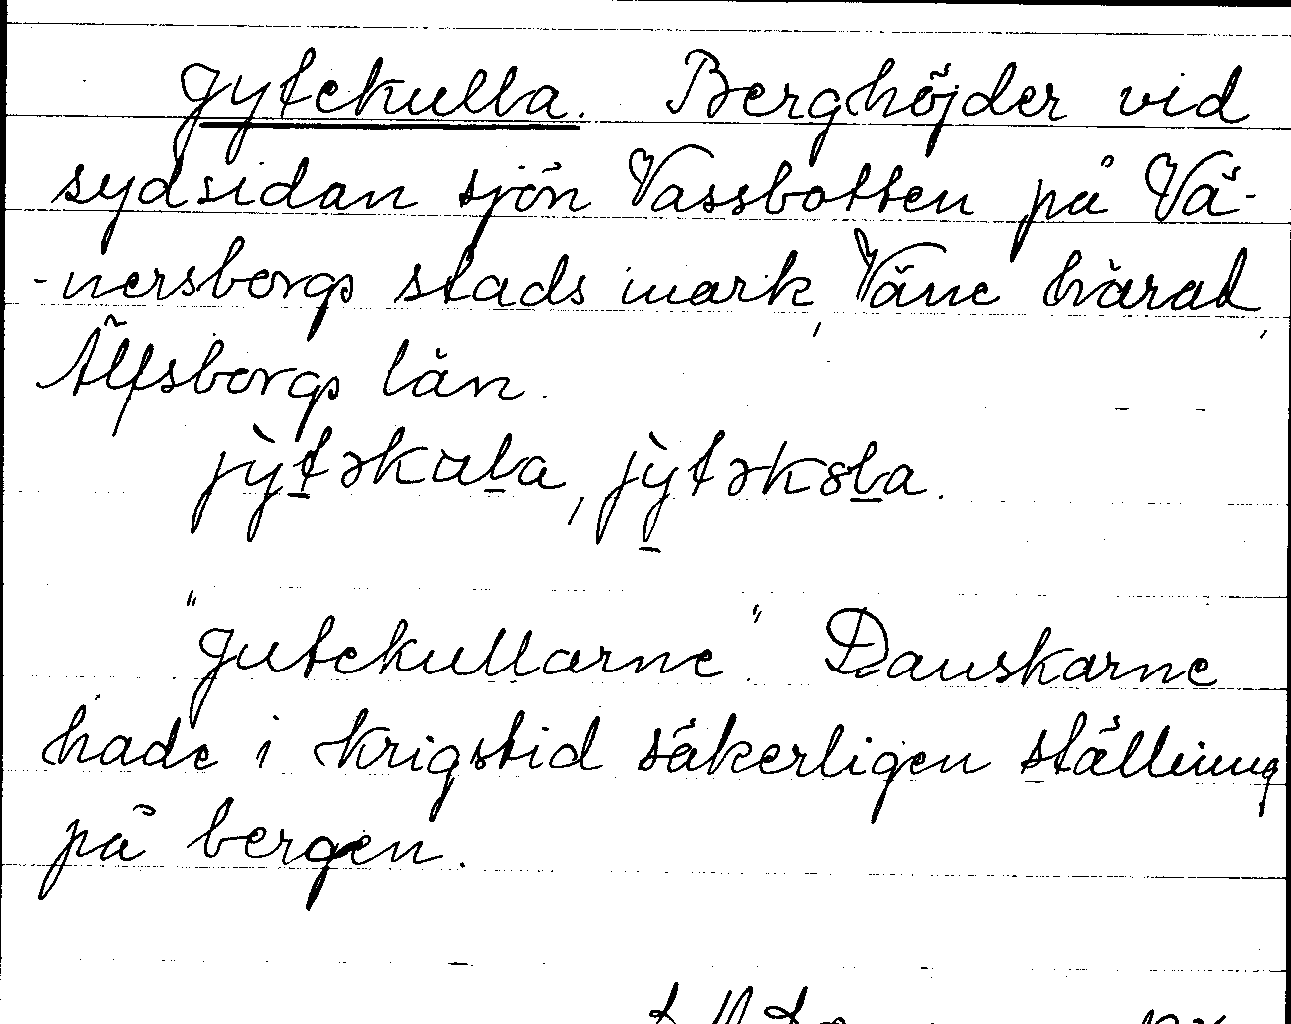 Jytekulla. Berghöjder vid
sydsidan sjön Vassbotten på Vä-
-nersborgs stads mark, Väne härad,
Älfsborgs län.
jy̏təkula, jy̏təkȣla.
"Jutekullarne". Danskarne
hade i krigstid säkerligen ställning
på bergen.